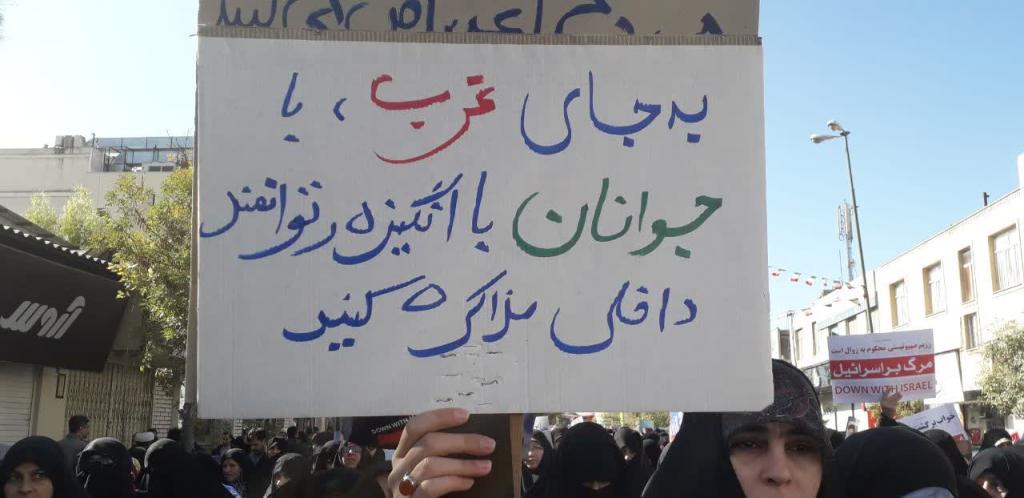 به جای غرب ، با
جوانان با انگیزه و توانمند
داخلی مذاکره کنید
رژیم صهیونیستی محکوم به زوال است
مرگ بر اسرائیل
DOWN WITH ISRAEL
DOWN WITH